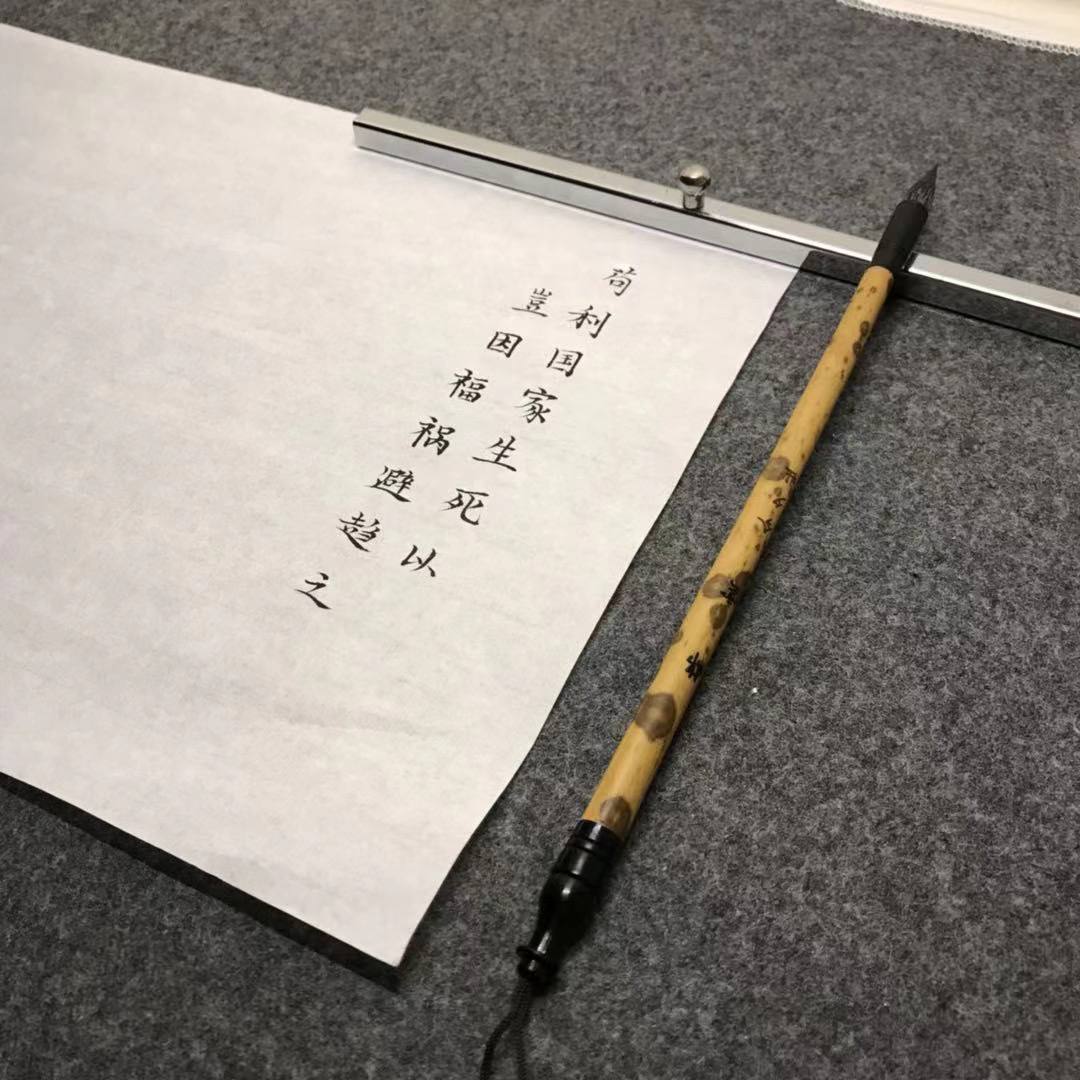 苟利国家生死以
豈因福祸避趋之